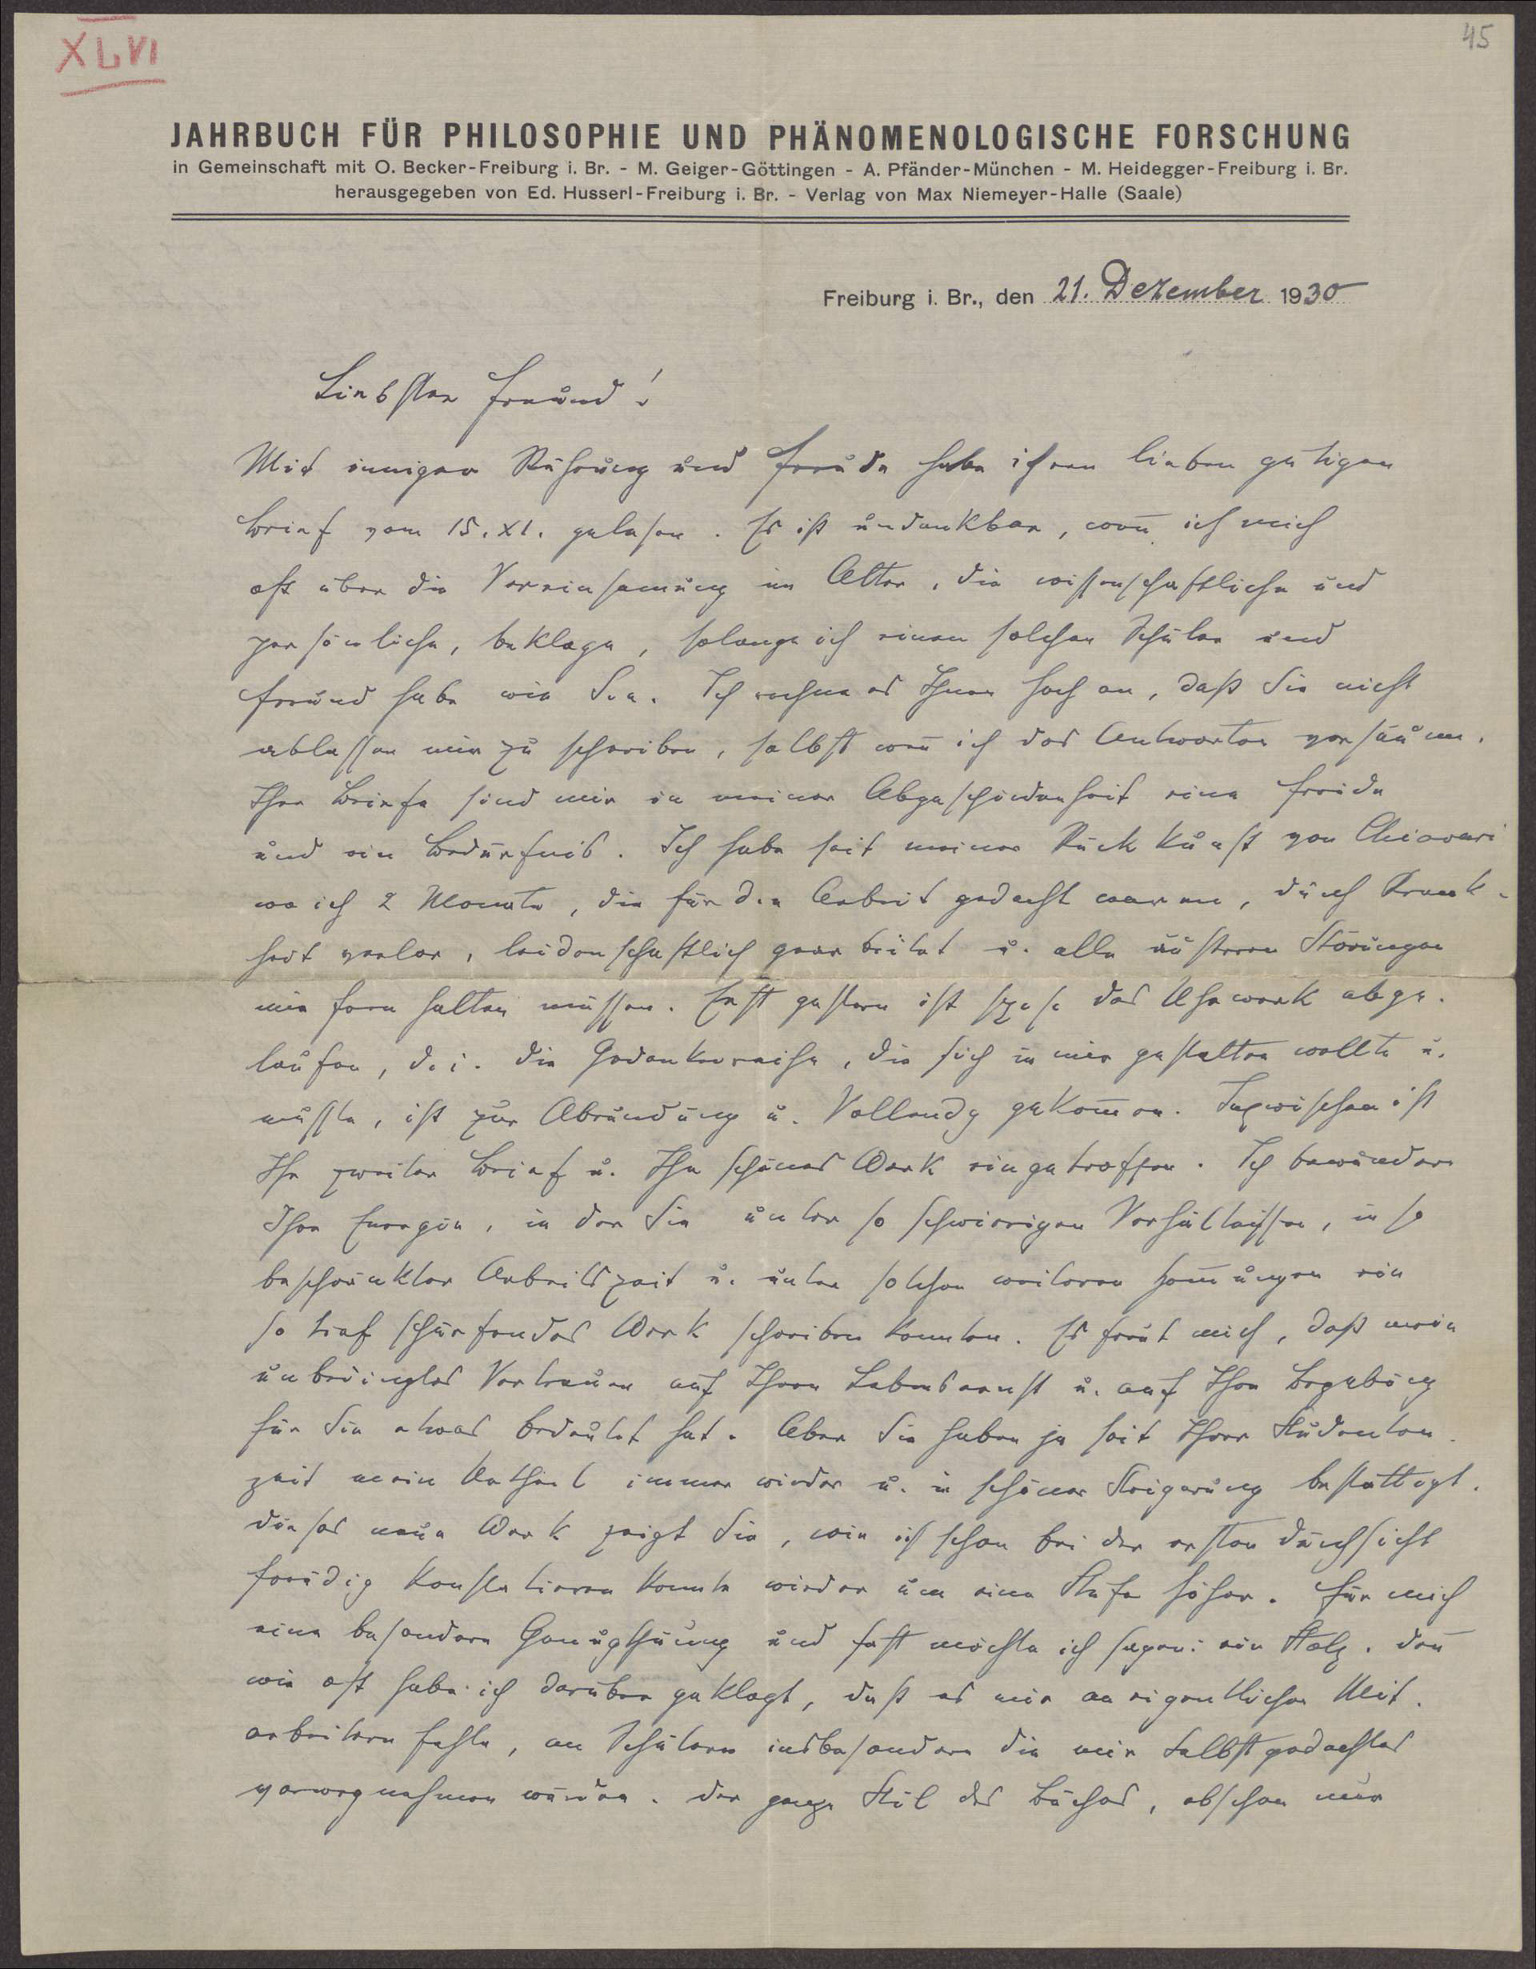 XLVI
45
JAHRBUCH FÜR PHILOSOPHIE UND PHÄNOMENOLOGISCHE FORSCHUNG
in Gemeinschaft mit O. Becker-Freiburg i. Br. - M. Geiger-Göttingen - A. Pfänder-München - M. Heidegger-Freiburg i. Br.
herausgegeben von Ed. Husserl-Freiburg i. Br. - Verlag von Max Niemeyer-Halle (Saale)
Freiburg i. Br., den 21. Dezember 1930
Liebster Freund!
Mit inniger Rührung und Freude habe ich ihren lieben gütigen
Brief vom 15. XI. gelesen. Es ist undankbar, wenn ich mich
oft über die Vereinsamung im Alter, die wissenschaftliche und
persönliche, beklage, solange ich einen solchen Schüler und
Freund habe wie Sie. Ich rechne es Ihnen hoch an, daß Sie nicht
ablassen mir zu schreiben, selbst wenn ich das Antworten versäume.
Ihre Briefe sind mir in meiner Abgeschiedenheit eine Freude
und ein Bedürfnis. Ich habe seit meiner Rückkunft von Chiavari
wo ich 2 Monate, die für die Arbeit gedacht waren, durch Krank-
heit verlor, leidenschaftlich gearbeitet u. alle äußeren Störungen
mir fern halten müssen. Erst gestern ist das Uhrwerk abge-
laufen, d. i. die Gedankenreihe, die sich in mir gestalten wollte u.
mußte, ist zur Abrundung u. Vollendg gekommen. Inzwischen ist
Ihr zweiter Brief u. Ihr schönes Werk eingetroffen. Ich bewundere
Ihre Energie, in der Sie unter so schwierigen Verhältnissen, in so
beschränkter Arbeitszeit u. unter solchen weiteren Hemmungen ein
so tief schürfendes Werk schreiben konnten. Es freut mich, daß mein
unbedingtes Vertrauen auf Ihren Lebensernst u. auf Ihre Begabung
für Sie etwas bedeutet hat. Aber Sie haben ja seit Ihrer Studenten-
zeit mein Urtheil immer wieder u. in schöner Steigerung bestättigt.
Dieses neue Werk zeigt Sie, wie ich schon bei der ersten Durchsicht
freudig konstatieren konnte wieder um eine Stufe höher. Für mich
eine besondere Genugthuung und fast möchte ich sagen: ein Stolz. Denn
wie oft habe ich darüber geklagt, daß es mir an eigentlichen Mit-
arbeitern fehle, an Schülern insbesondere die mir Selbstgedachtes
vorwegnehmen würden. Der ganze Stil des Buches, obschon nur